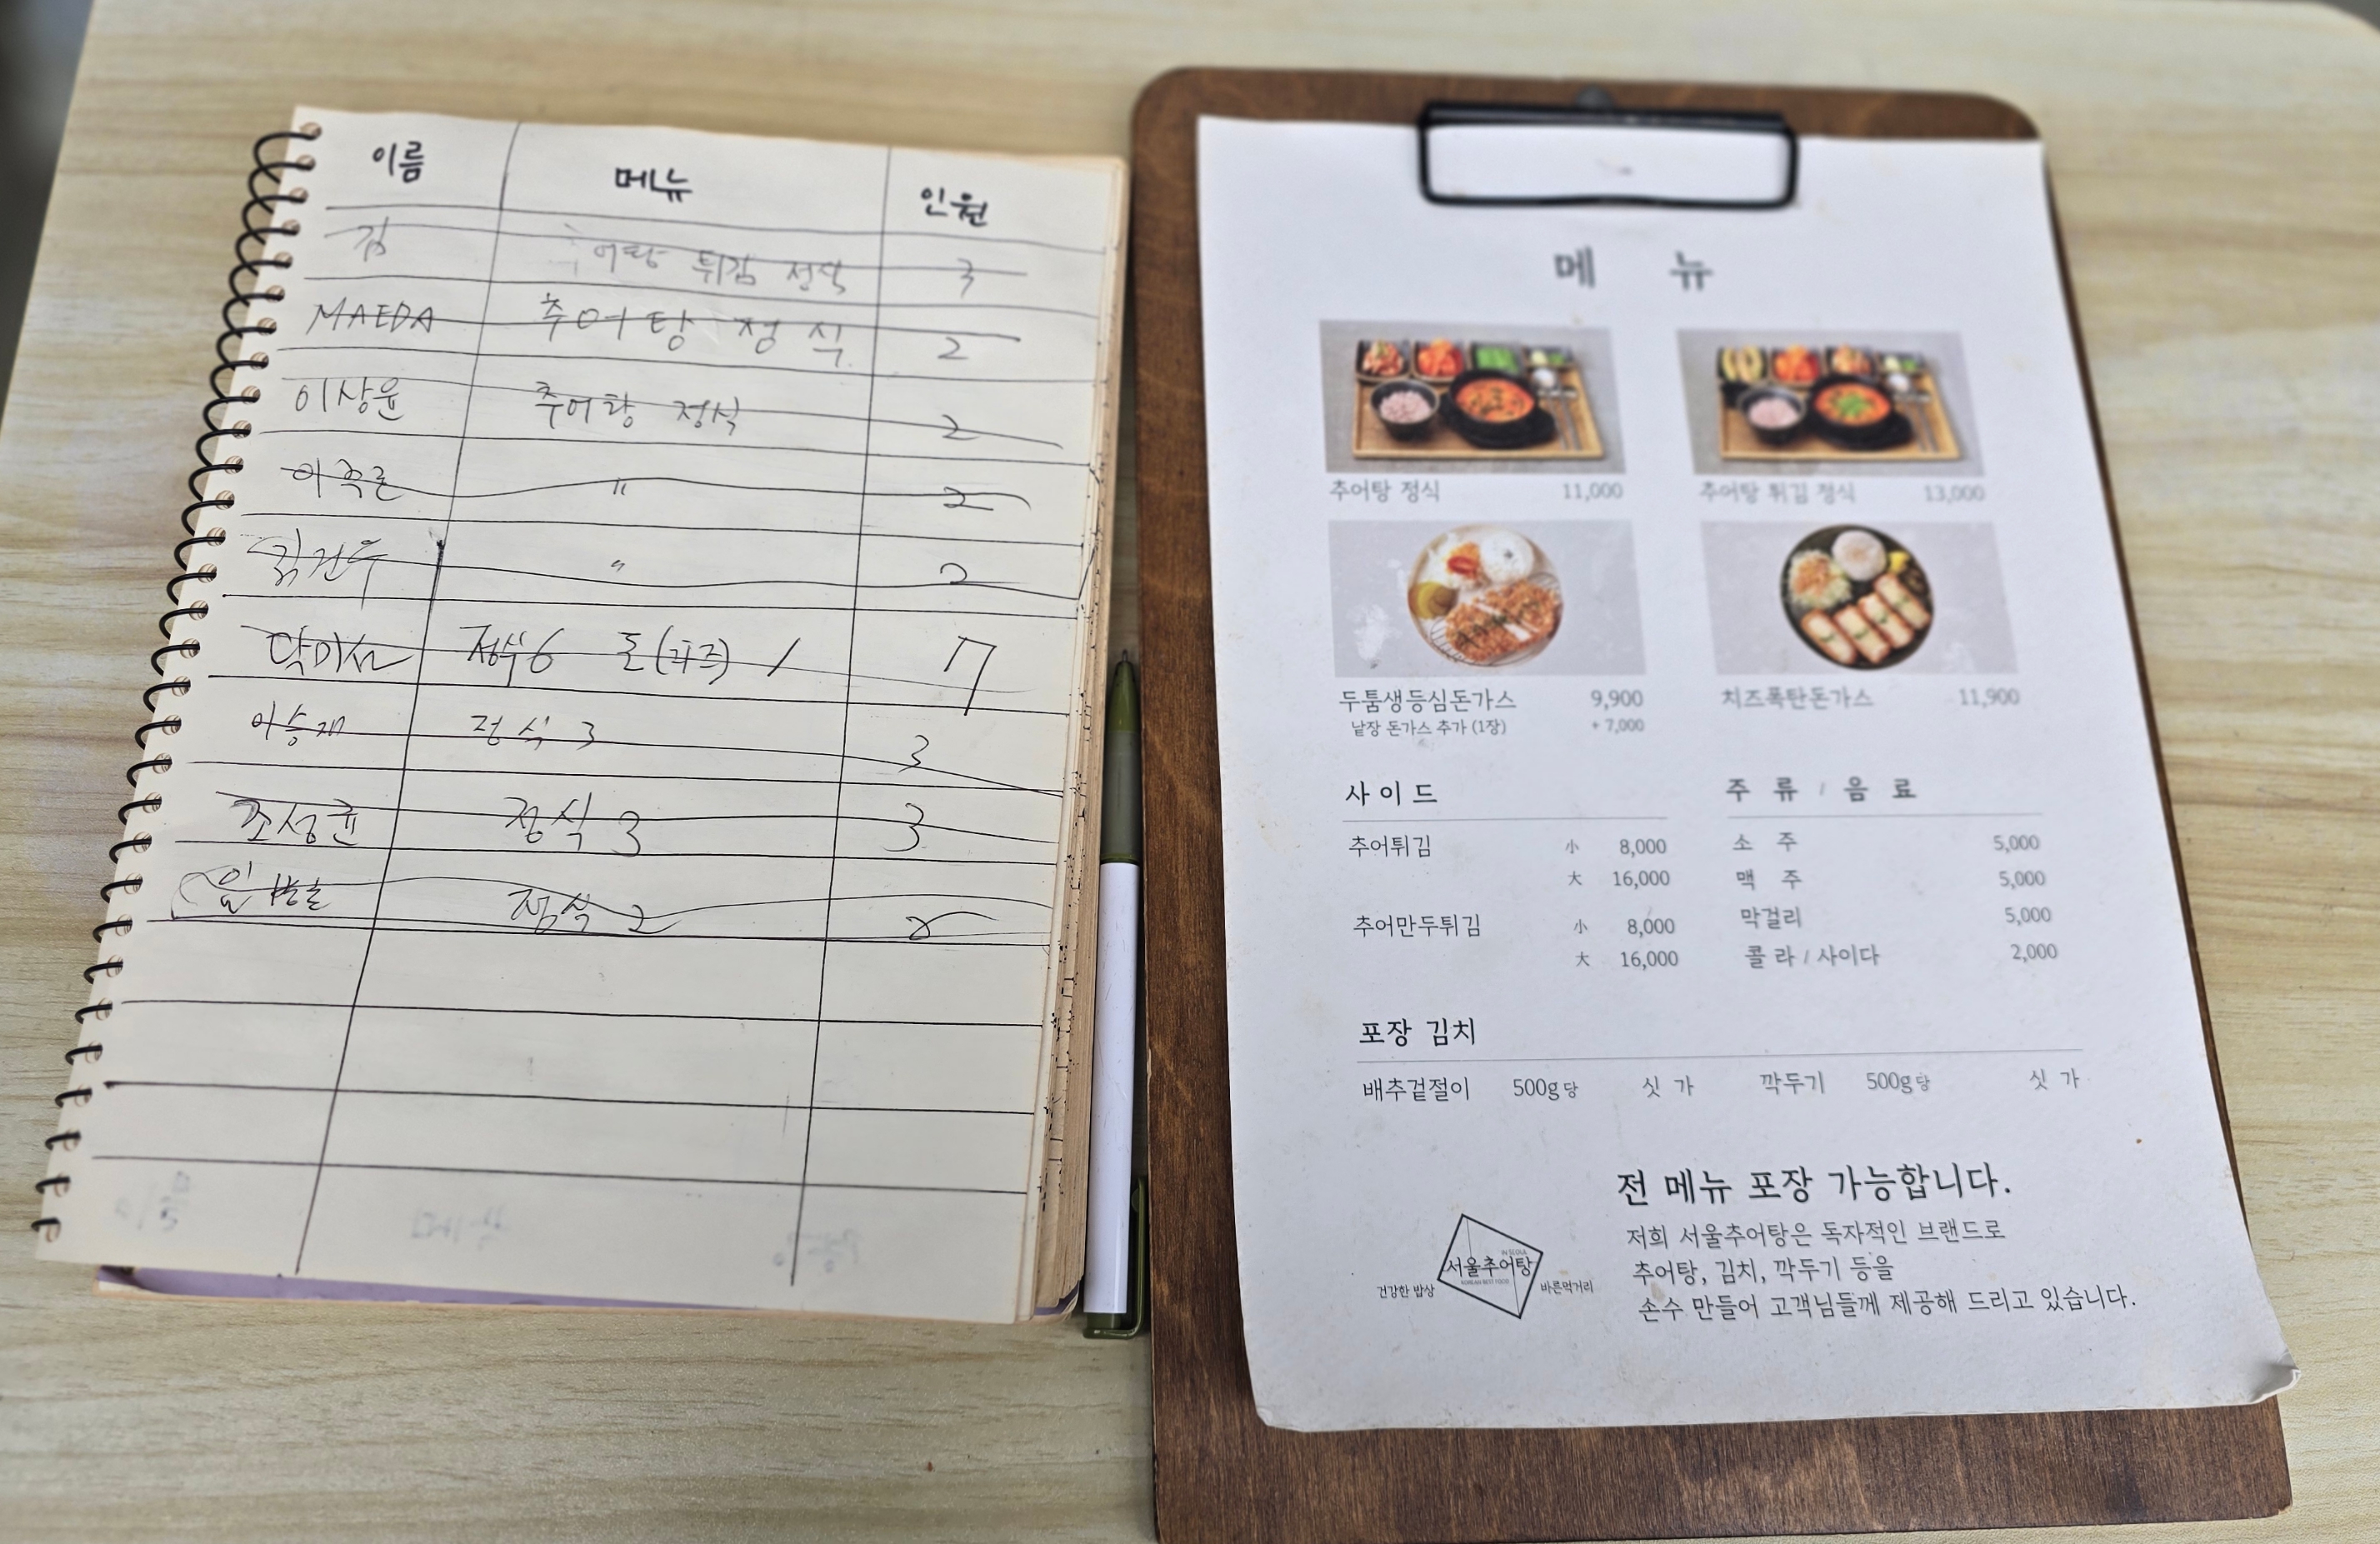 이름 메뉴 인원
김 어탕 튀김 정식 3
MAEDA 추어탕 정식 2
이상윤 추어탕 정식 2
이 〃 2
건우 〃 2
6 돈(치즈) 1 7
이승재 정식 3 3
조성균 정식 3 3
정식 2 2
메 뉴
추어탕 정식 11,000
추어탕 튀김 정식 13,000
두툼생등심돈가스 9,900
낱장 돈가스 추가 (1장) + 7,000
치즈폭탄돈가스 11,900
사이드
추어튀김 小 8,000
大 16,000
추어만두튀김 小 8,000
大 16,000
주 류 / 음 료
소 주 5,000
맥 주 5,000
막걸리 5,000
콜 라 / 사이다 2,000
포장 김치
배추겉절이 500g당 싯 가 깍두기 500g당 싯 가
전 메뉴 포장 가능합니다.
저희 서울추어탕은 독자적인 브랜드로
추어탕, 김치, 깍두기 등을
손수 만들어 고객님들께 제공해 드리고 있습니다.
IN SEOUL
건강한 밥상 서울추어탕 바른먹거리
KOREAN BEST FOOD